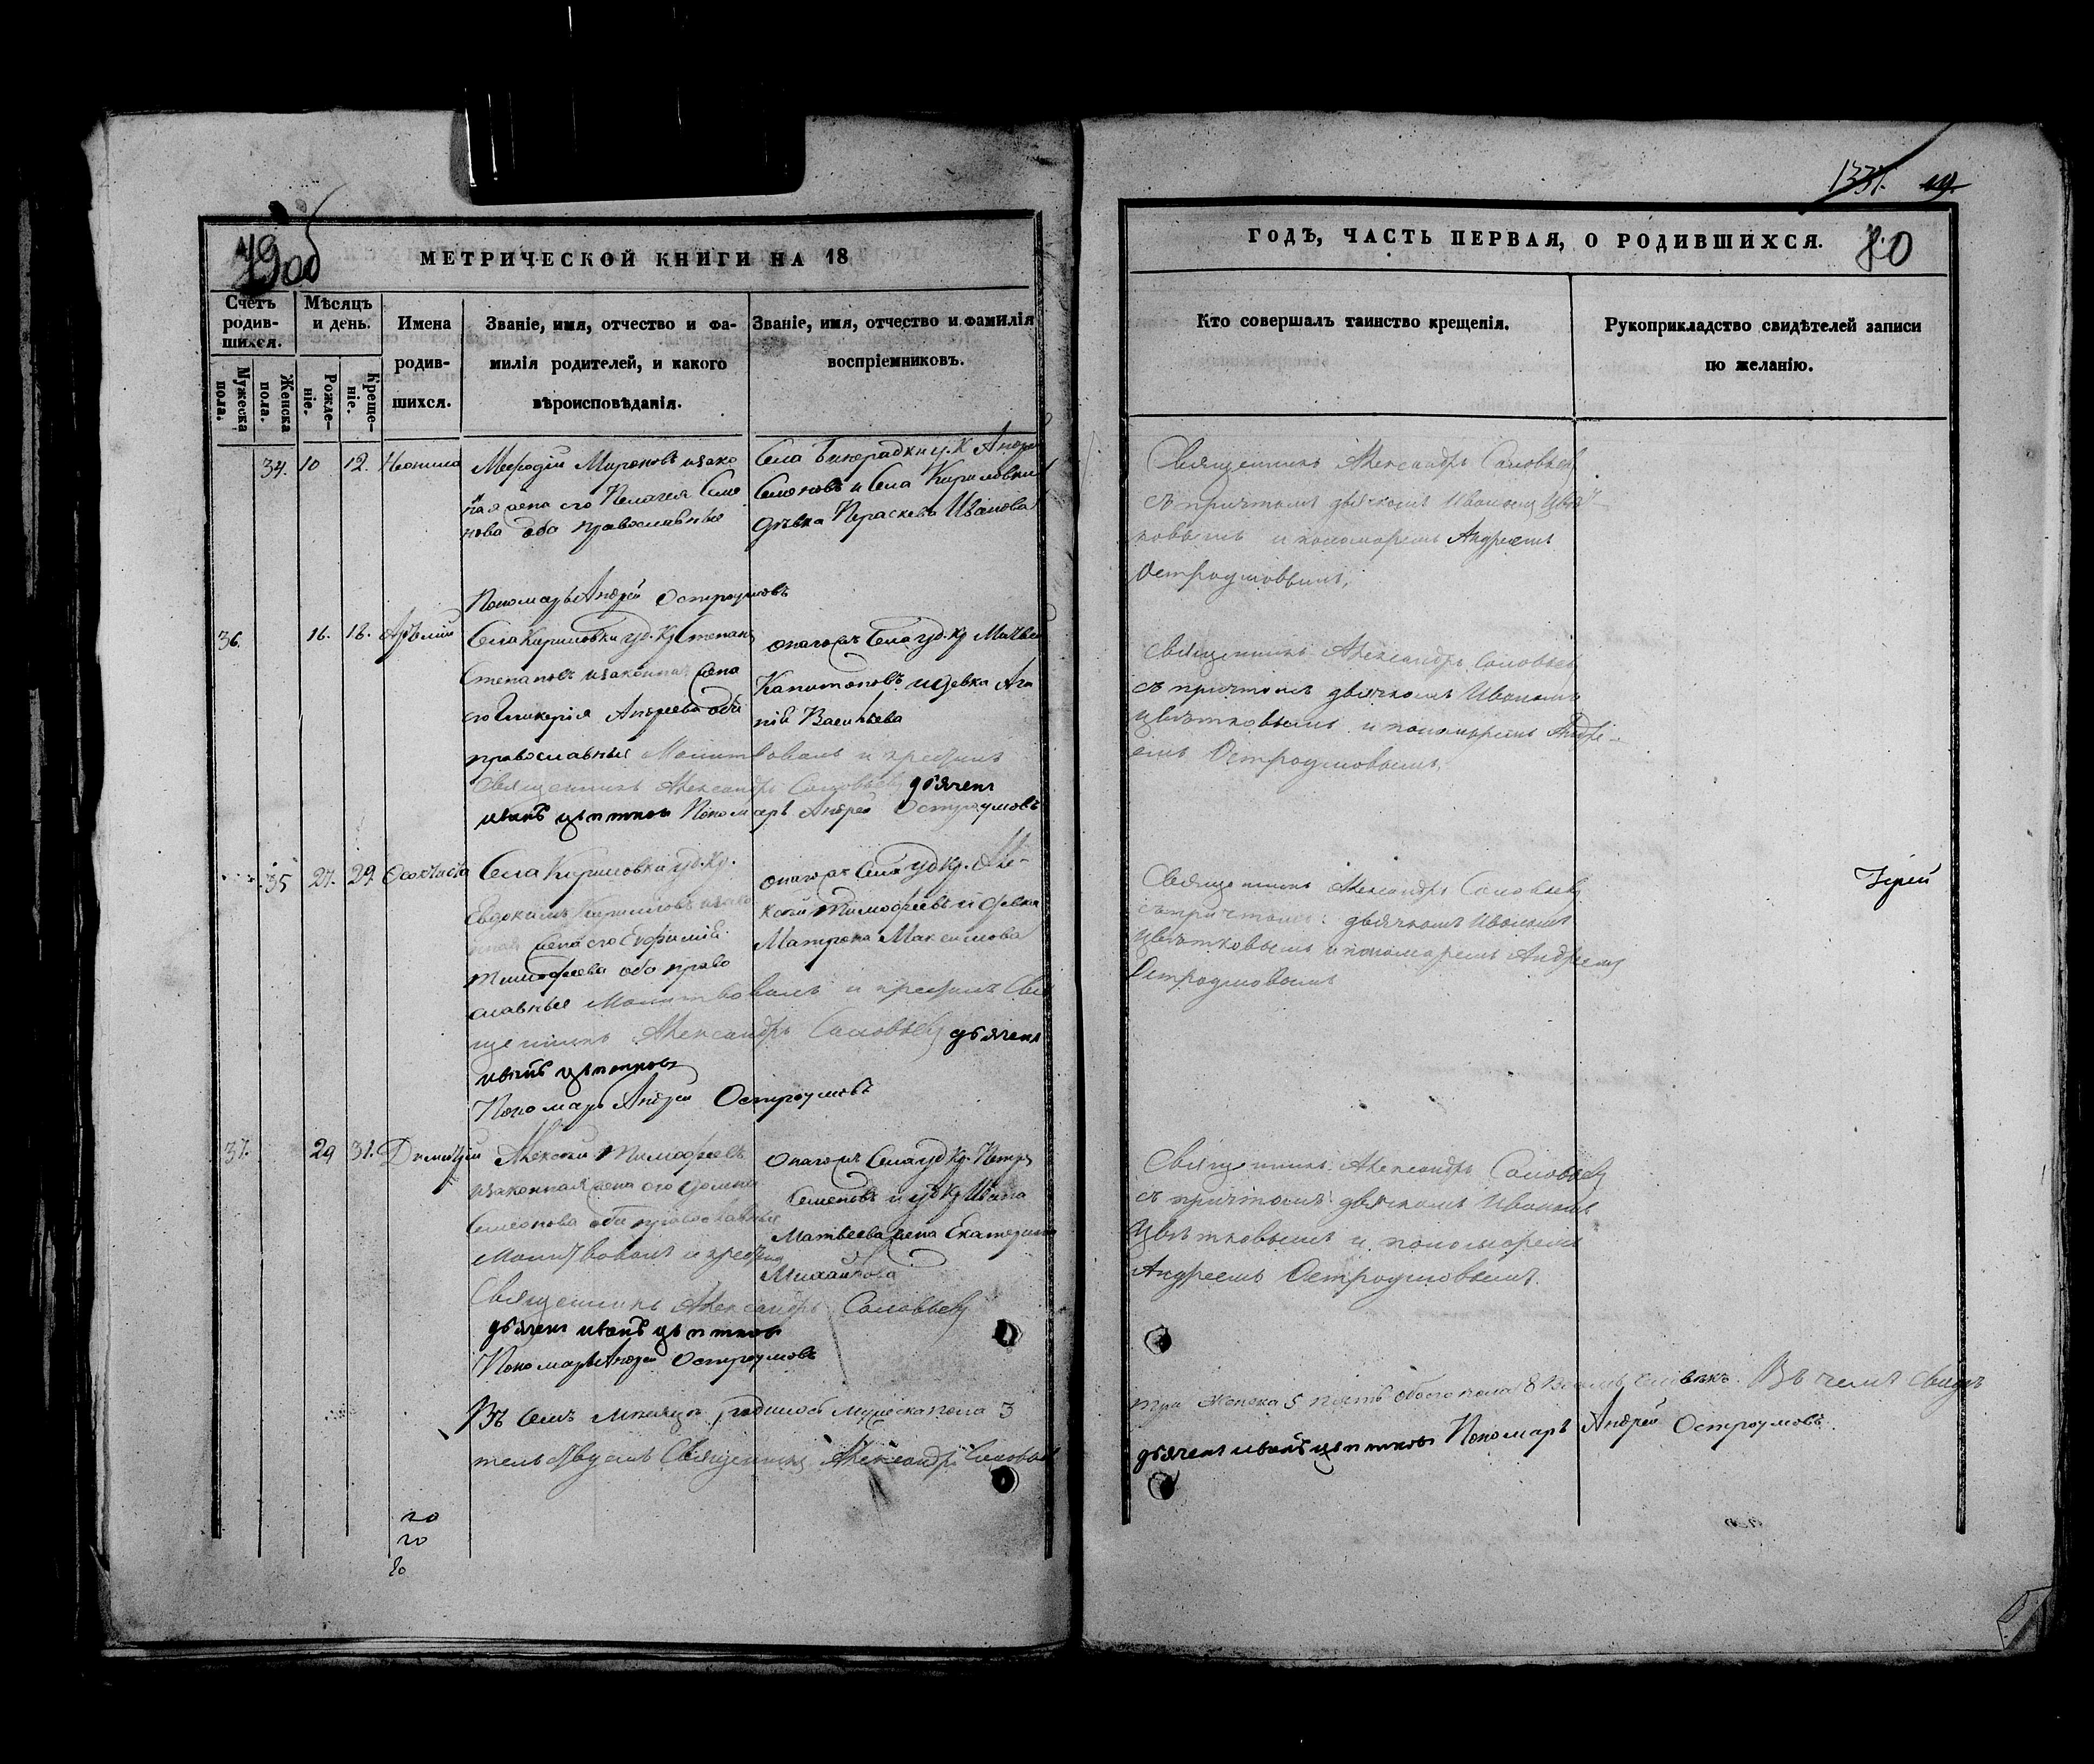 79об
МЕТРИЧЕСКОЙ КНИГИ НА 18
Счетъ родив-шихся.
Мѣсяцъ и день.
Мужеска пола.
Женска пола.
Рожде-ніе.
Креще-ніе.
Имена родив-шихся.
Званіе, имя, отчество и фа-
милія родителей, и какого
вѣроисповѣданія.
Званіе, имя, отчество и фамилія
воспріемниковъ.
34. 10 12. Неонила
Мефодій Мироновъ изако
ная жена его Пелагея Симо
нова оба православные
Села Бинарадки у. К Андрей
Семеновъ и Села Кириловки
дѣвка Параскева Иванова
Пономарь Андрей Остроумовъ
36. 16. 18.
Села Кириловки уд. Кр Степанъ
Степановъ изаконная жена
его Гликерія Андреева оба
православные Молитвовалъ и крестилъ
Священникъ Александръ Соловьевъ дьячекъ
иванъ цветковъ Пономарь Андрей Остроумовъ
онагожъ Села уд. Кр
Капитоновъ и девка Ага
Васильева
35 27. 29. Феоктиста
Села Кириловки уд. Кр.
Евдокимъ Кириловъ изако
нная жена его Евфимія
Тимофеева оба право
славные Молитвовалъ и крестилъ Свя
щенникъ Александръ Соловьевъ дьячекъ
иванъ цветковъ
Пономарь Андрей Остроумовъ
онагожъ Села уд Кр. Але-
ксѣй Тимофеевъ и девка
Матрона Максимова
37. 29 31. Димитрій
Алексѣй Тимофеевъ
изаконная жена его Домна
Симеонова оба православные
Молитвовалъ и крестилъ
Священникъ Александръ Соловьевъ
дьячекъ иванъ цветковъ
Пономарь Андрей Остроумовъ
Онагожъ Села уд Кр. Петръ
Семеновъ и уд Кр Ивана
Матвеева жена Екатерина
Михайлова
Въ семъ месяцѣ родилось мужеска пола 3
тельствуемъ Священникъ Александръ Соловьевъ
20
20
1331. 119.
ГОДЪ, ЧАСТЬ ПЕРВАЯ, О РОДИВШИХСЯ.
80
Кто совершалъ таинство крещенія.
Рукоприкладство свидѣтелей записи
по желанію.
Священникъ Александръ Соловьевъ
съ причтомъ дьячкомъ Иваномъ Цвѣт
ковымъ и пономаремъ Андреемъ
Остроумовымъ.
Священникъ Александръ Соловьевъ
съ причтомъ дьячкомъ Иваномъ
Цвѣтковымъ и пономаремъ Андре-
емъ Остроумовымъ.
Священникъ Александръ Соловьевъ
съ причтомъ: дьячкомъ Иваномъ
Цвѣтковымъ и пономаремъ Андреемъ
Остроумовымъ
Іерей
Священникъ Александръ Соловьевъ
съ причтомъ: дьячкомъ Иваномъ
Цвѣтковымъ и пономаремъ
Андреемъ Остроумовымъ.
три Женска 5 пять обоего пола 8 Восемь человѣкъ. Въ чемъ свидѣ
дьячекъ иванъ цветковъ Пономарь Андрей Остроумовъ.